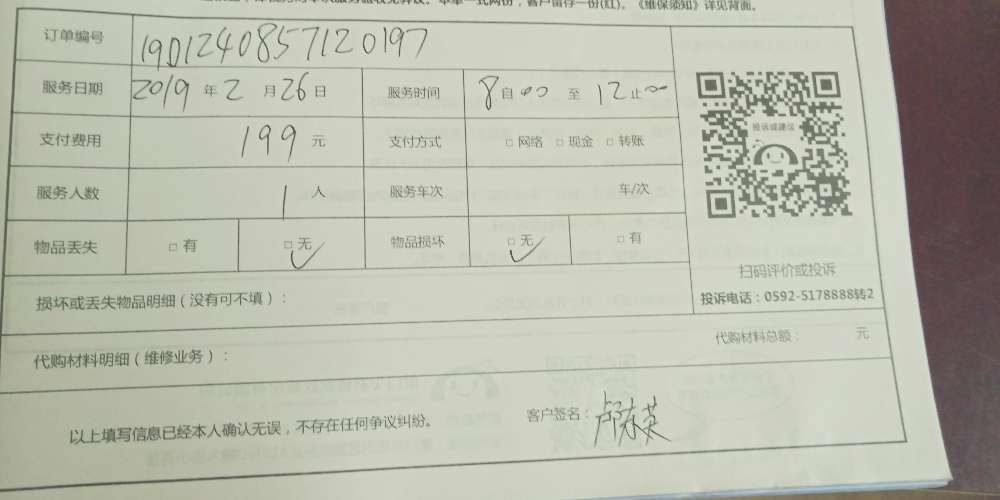 客户留存一份(红)。《维保须知》详见背面。
订单编号 19D1240857120197
服务日期 2019 年 2 月 26 日 服务时间 8 自 00 至 12 止 00
支付费用 199 元 支付方式 □ 网络 □ 现金 □ 转账
服务人数 1 人 服务车次 车/次
物品丢失 □ 有 □ 无 ✓ 物品损坏 □ 无 ✓ □ 有
投诉或建议
扫码评价或投诉
投诉电话：0592-5178888转2
损坏或丢失物品明细（没有可不填）：
代购材料明细（维修业务）： 代购材料总额： 元
以上填写信息已经本人确认无误，不存在任何争议纠纷。 客户签名：